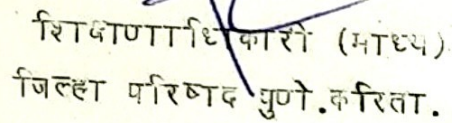 शिक्षणाधिकारी (माध्य)
जिल्हा परिषद पुणे.करिता.